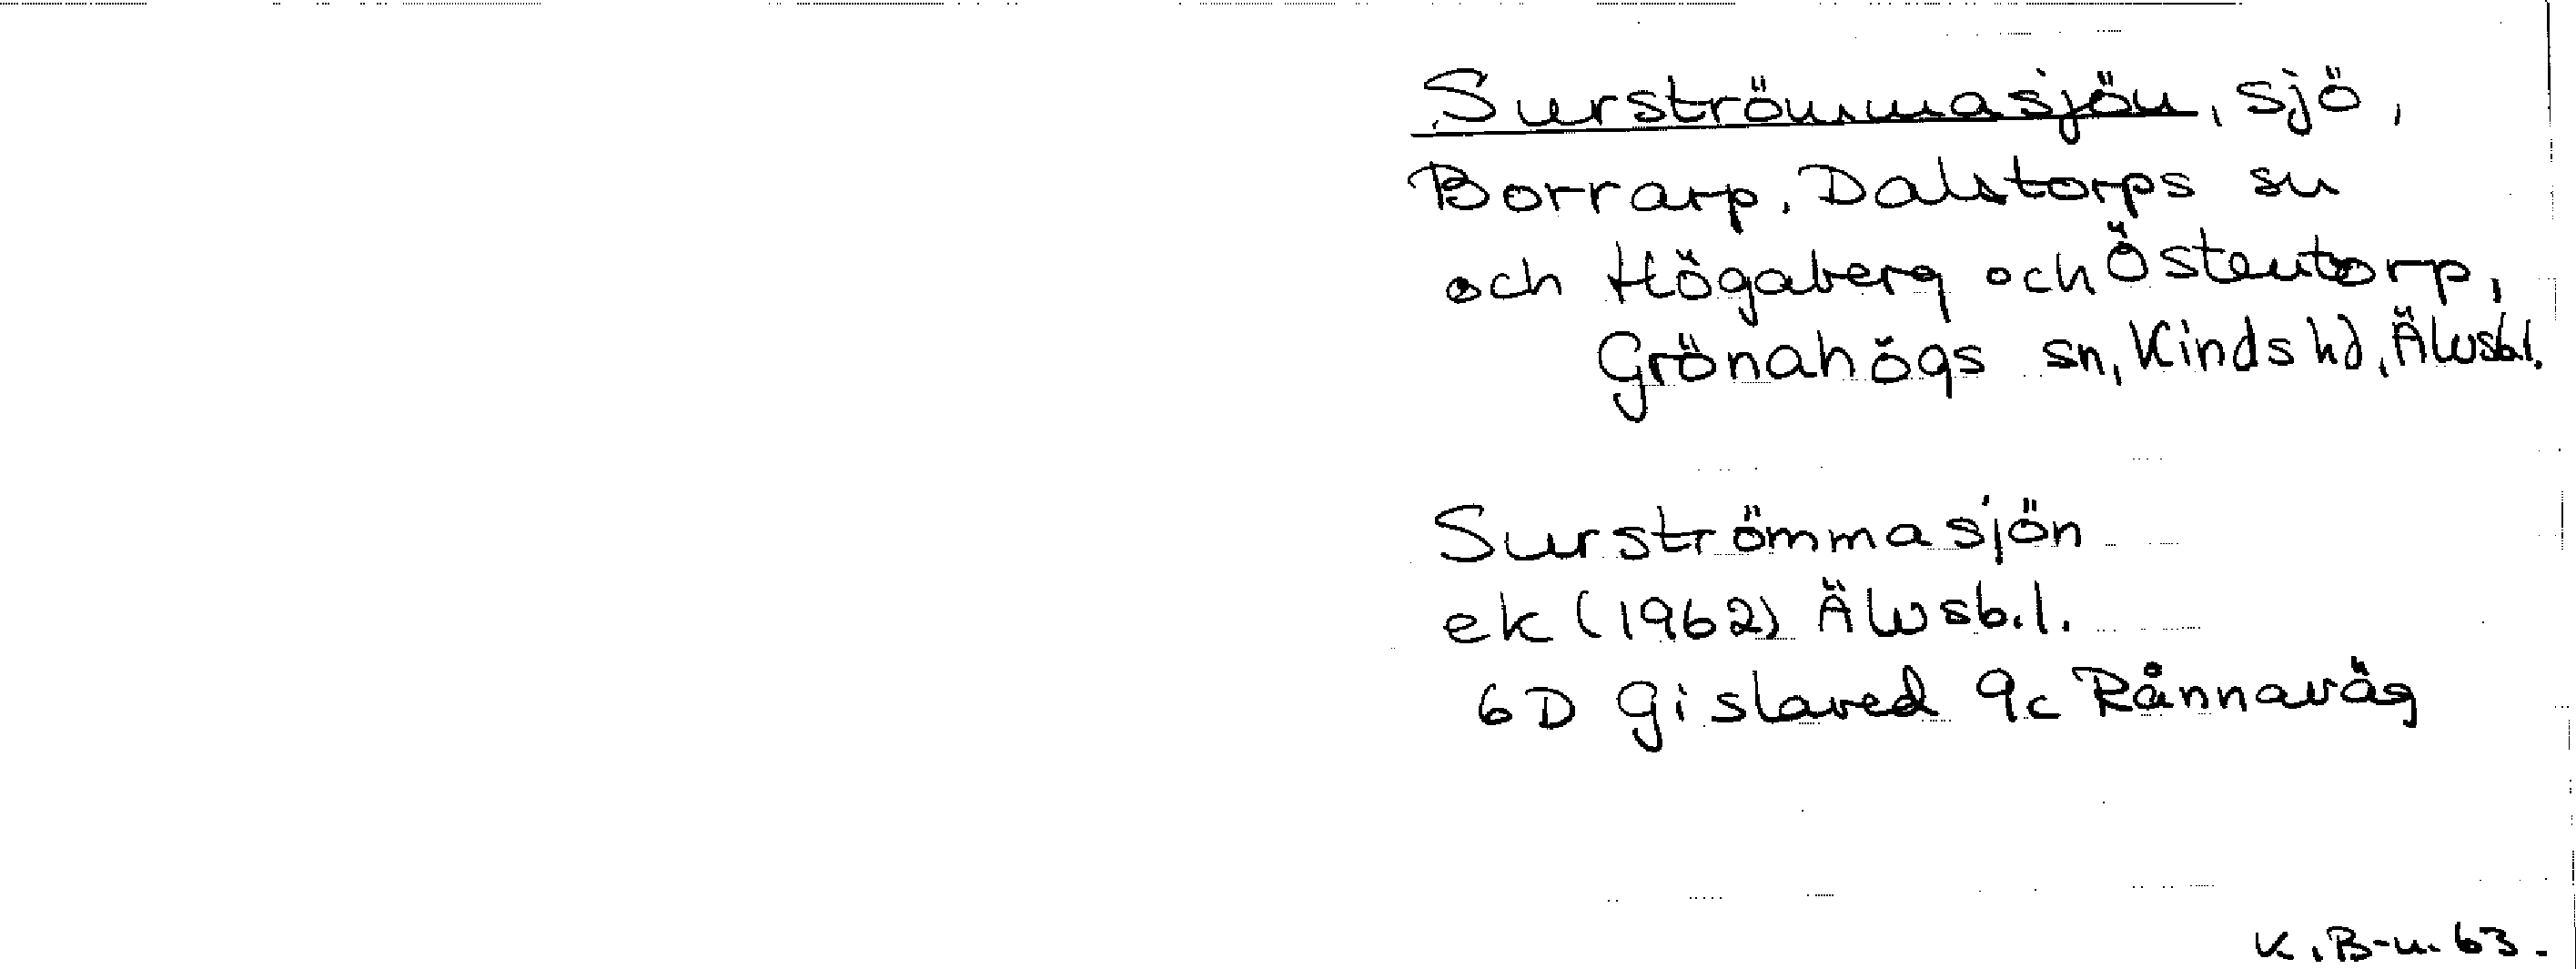 Surströmmasjön, sjö,
Borrarp, Dalstorps sn
och Högaberg och Östentorp,
Grönahögs sn, Kinds hd, Älvsb.l.
Surströmmasjön
ek (1962) Älvsb.l.
6D Gislaved 9c Rånnaväg
K.B-n. 63.